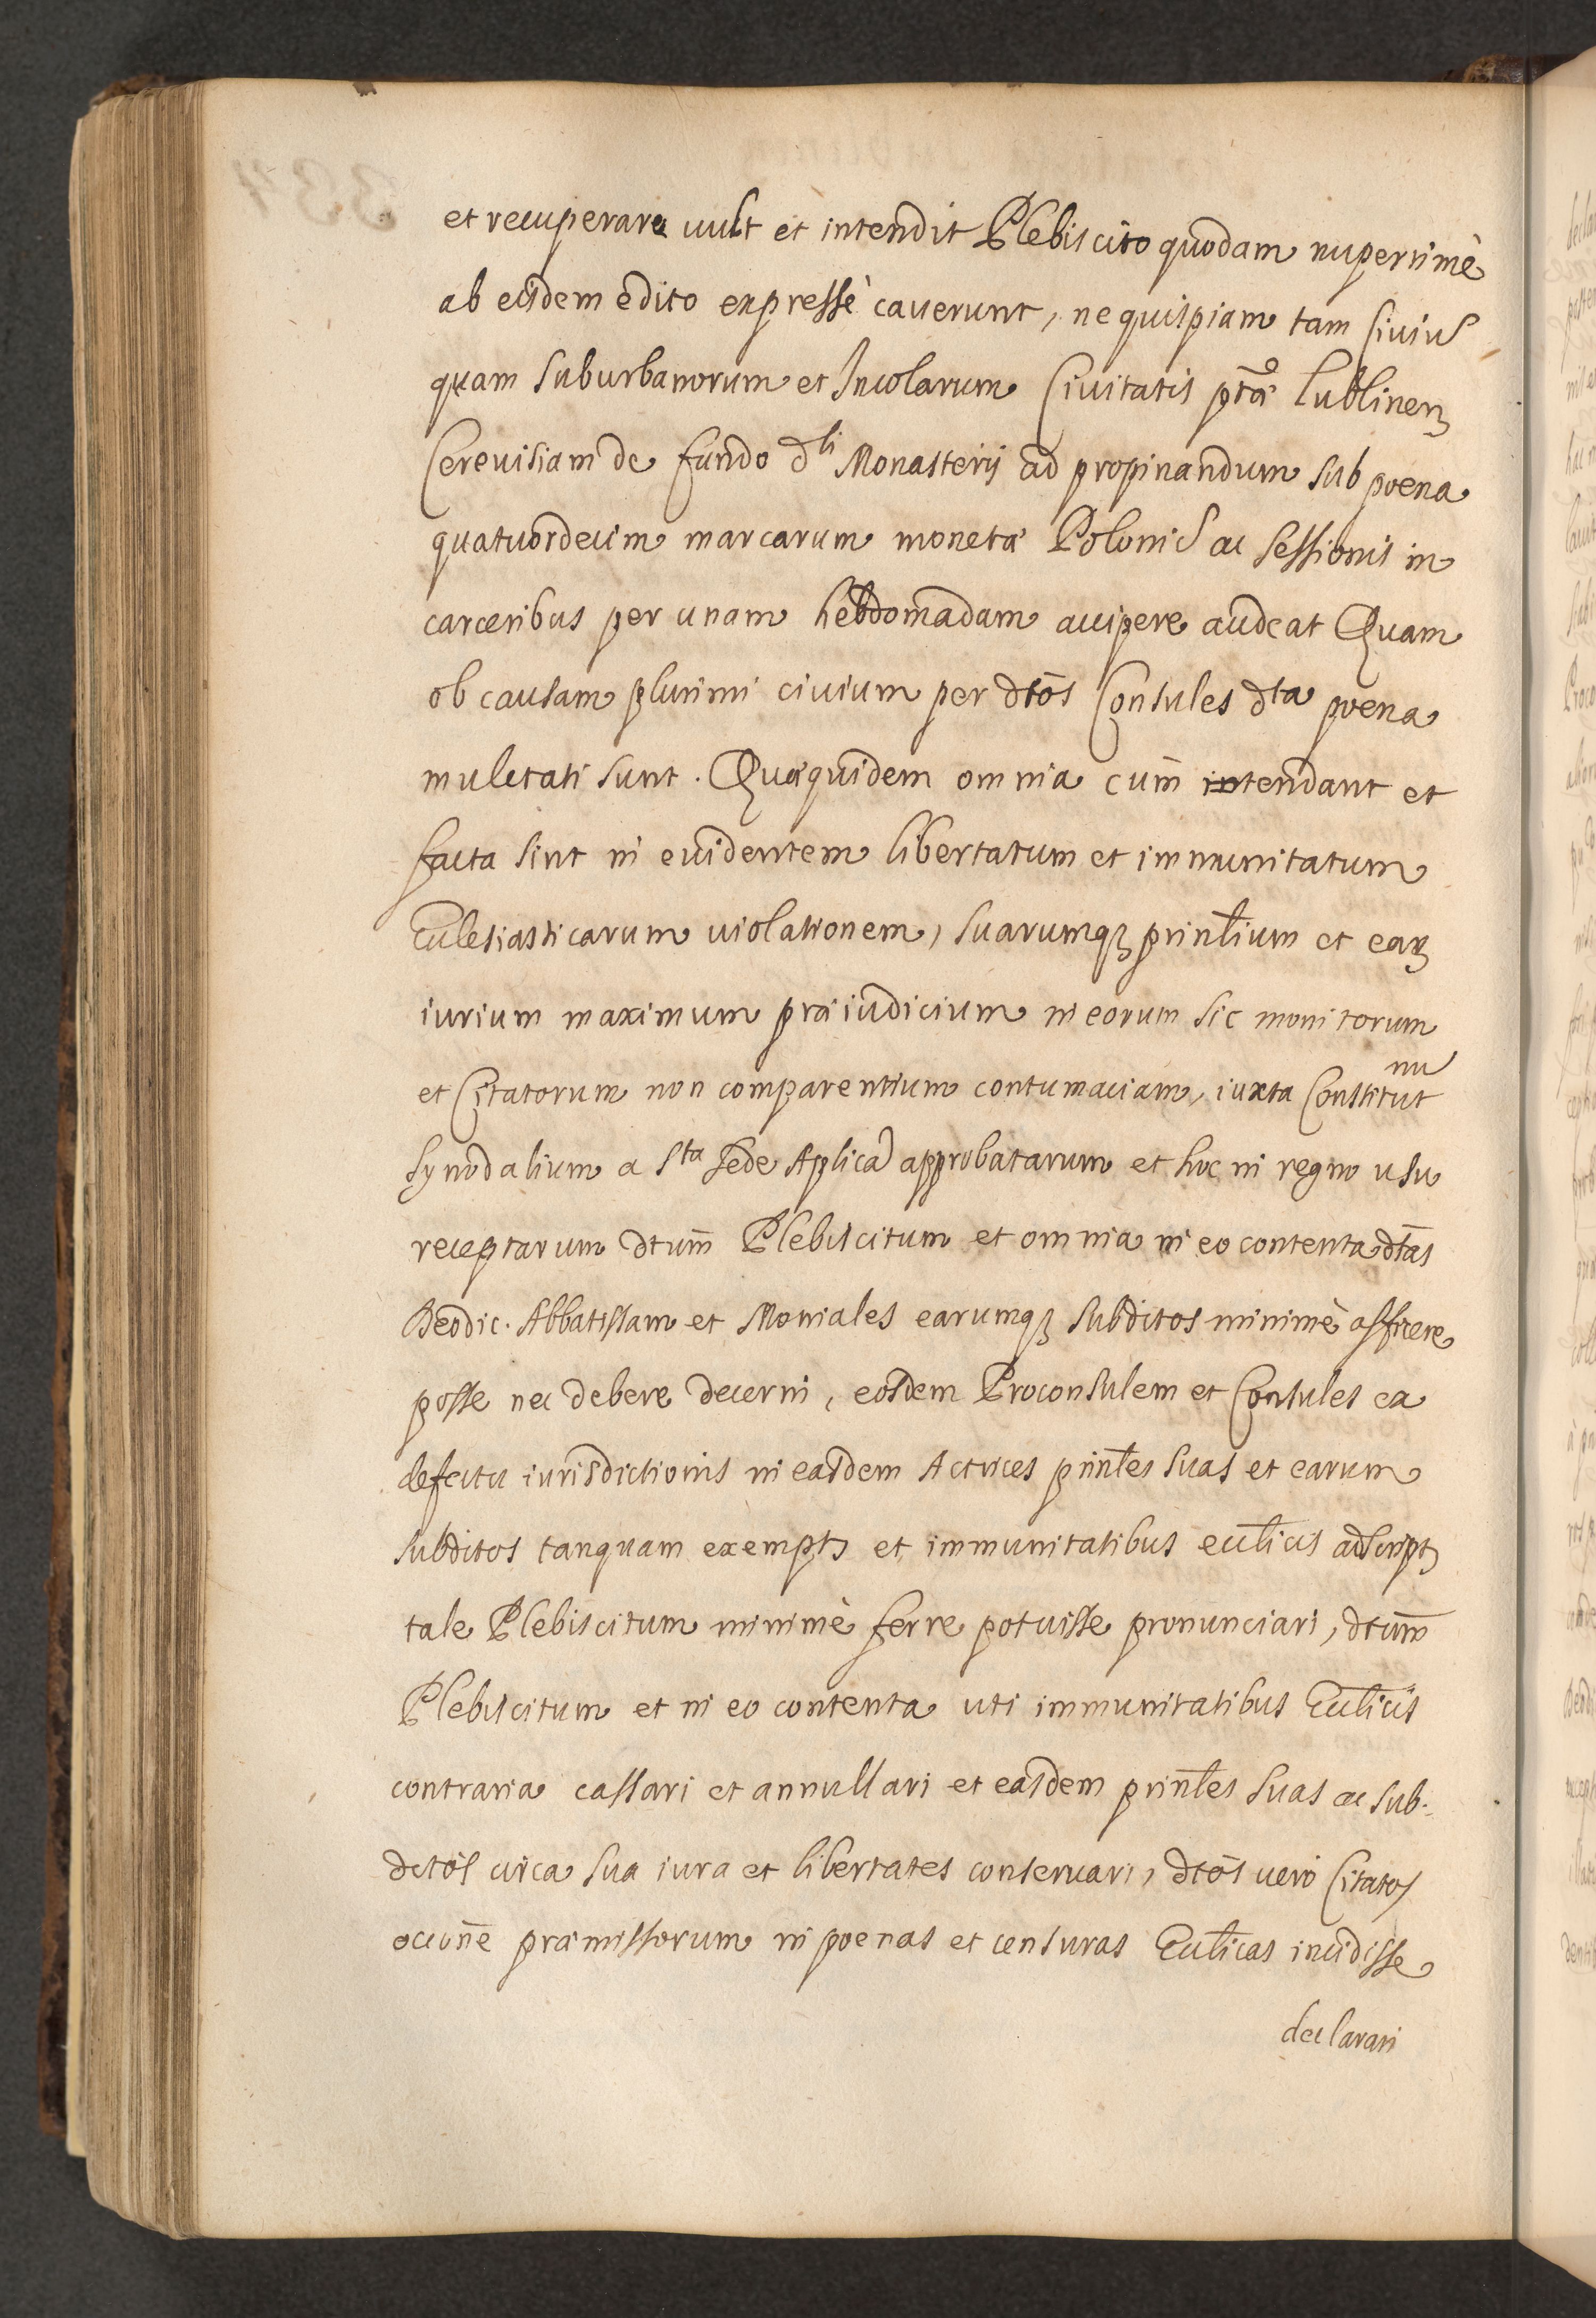 et recuperare uult et intendit Plebiscito quodam nuperrimè
ab eisdem edito expressè cauerunt, ne quispiam tam Ciuiu
quam Suburbanorum et Incolarum Ciuitatis ptæ Lublinen
Cereuisiam de fundo dti Monasterij ad propinandum sub poena
quatuordecim marcarum monetæ Poloni ac Sessionis in
carceribus per unam hebdomadam accipere audeat Quam
ob causam plurimi ciuium per dtōs Consules dta poena
mulctati sunt. Quæquidem omnia cum intendant et
facta sint in euidentem libertatum et immunitatum
Ecclesiasticarum uiolationem, suarumqȝ prinlium et earȝ
iurium maximum præiudicium in eorum sic monitorum
et Citatorum non comparentium contumaciam, iuxta Constitut
nu
Synodalium a Sta Sede Aplica approbatarum et hoc in regno usu
receptarum dtum Plebiscitum et omnia in eo contenta dtas
Deodic. Abbatissam et Moniales earumqȝ subditos minimè afficere
posse nec debere decerni, eosdem Proconsulem et Consules ea
defectu iurisdictionis in easdem Actrices prinles suas et earum
subditos tanquam exemptȝ et immunitatibus ecclicis adscriptȝ
tale Plebiscitum minimè ferre potuisse pronunciari, dtum
Plebiscitum et in eo contenta uti immunitatibus Ecclicis
contraria cassari et annullari et easdem prinles suas ac sub.
ditos circa sua iura et libertates conseruari, dtōs uero Citatos
occōne præmissorum in poenas et censuras Ecclicas incidisse
declarari